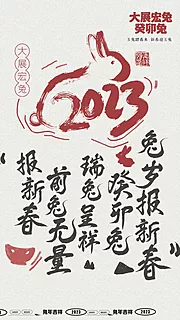 大展宏兔
癸卯兔
玉兔迎春来 新春迎玉兔
大展宏兔
2023
兔岁报新春
癸卯兔
瑞兔呈祥
前兔无量
报新春
兔年吉祥 2023 兔年吉祥